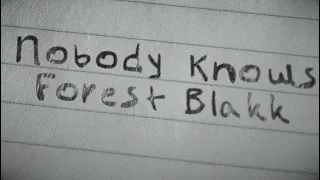 Nobody Knows
Forest Blakk